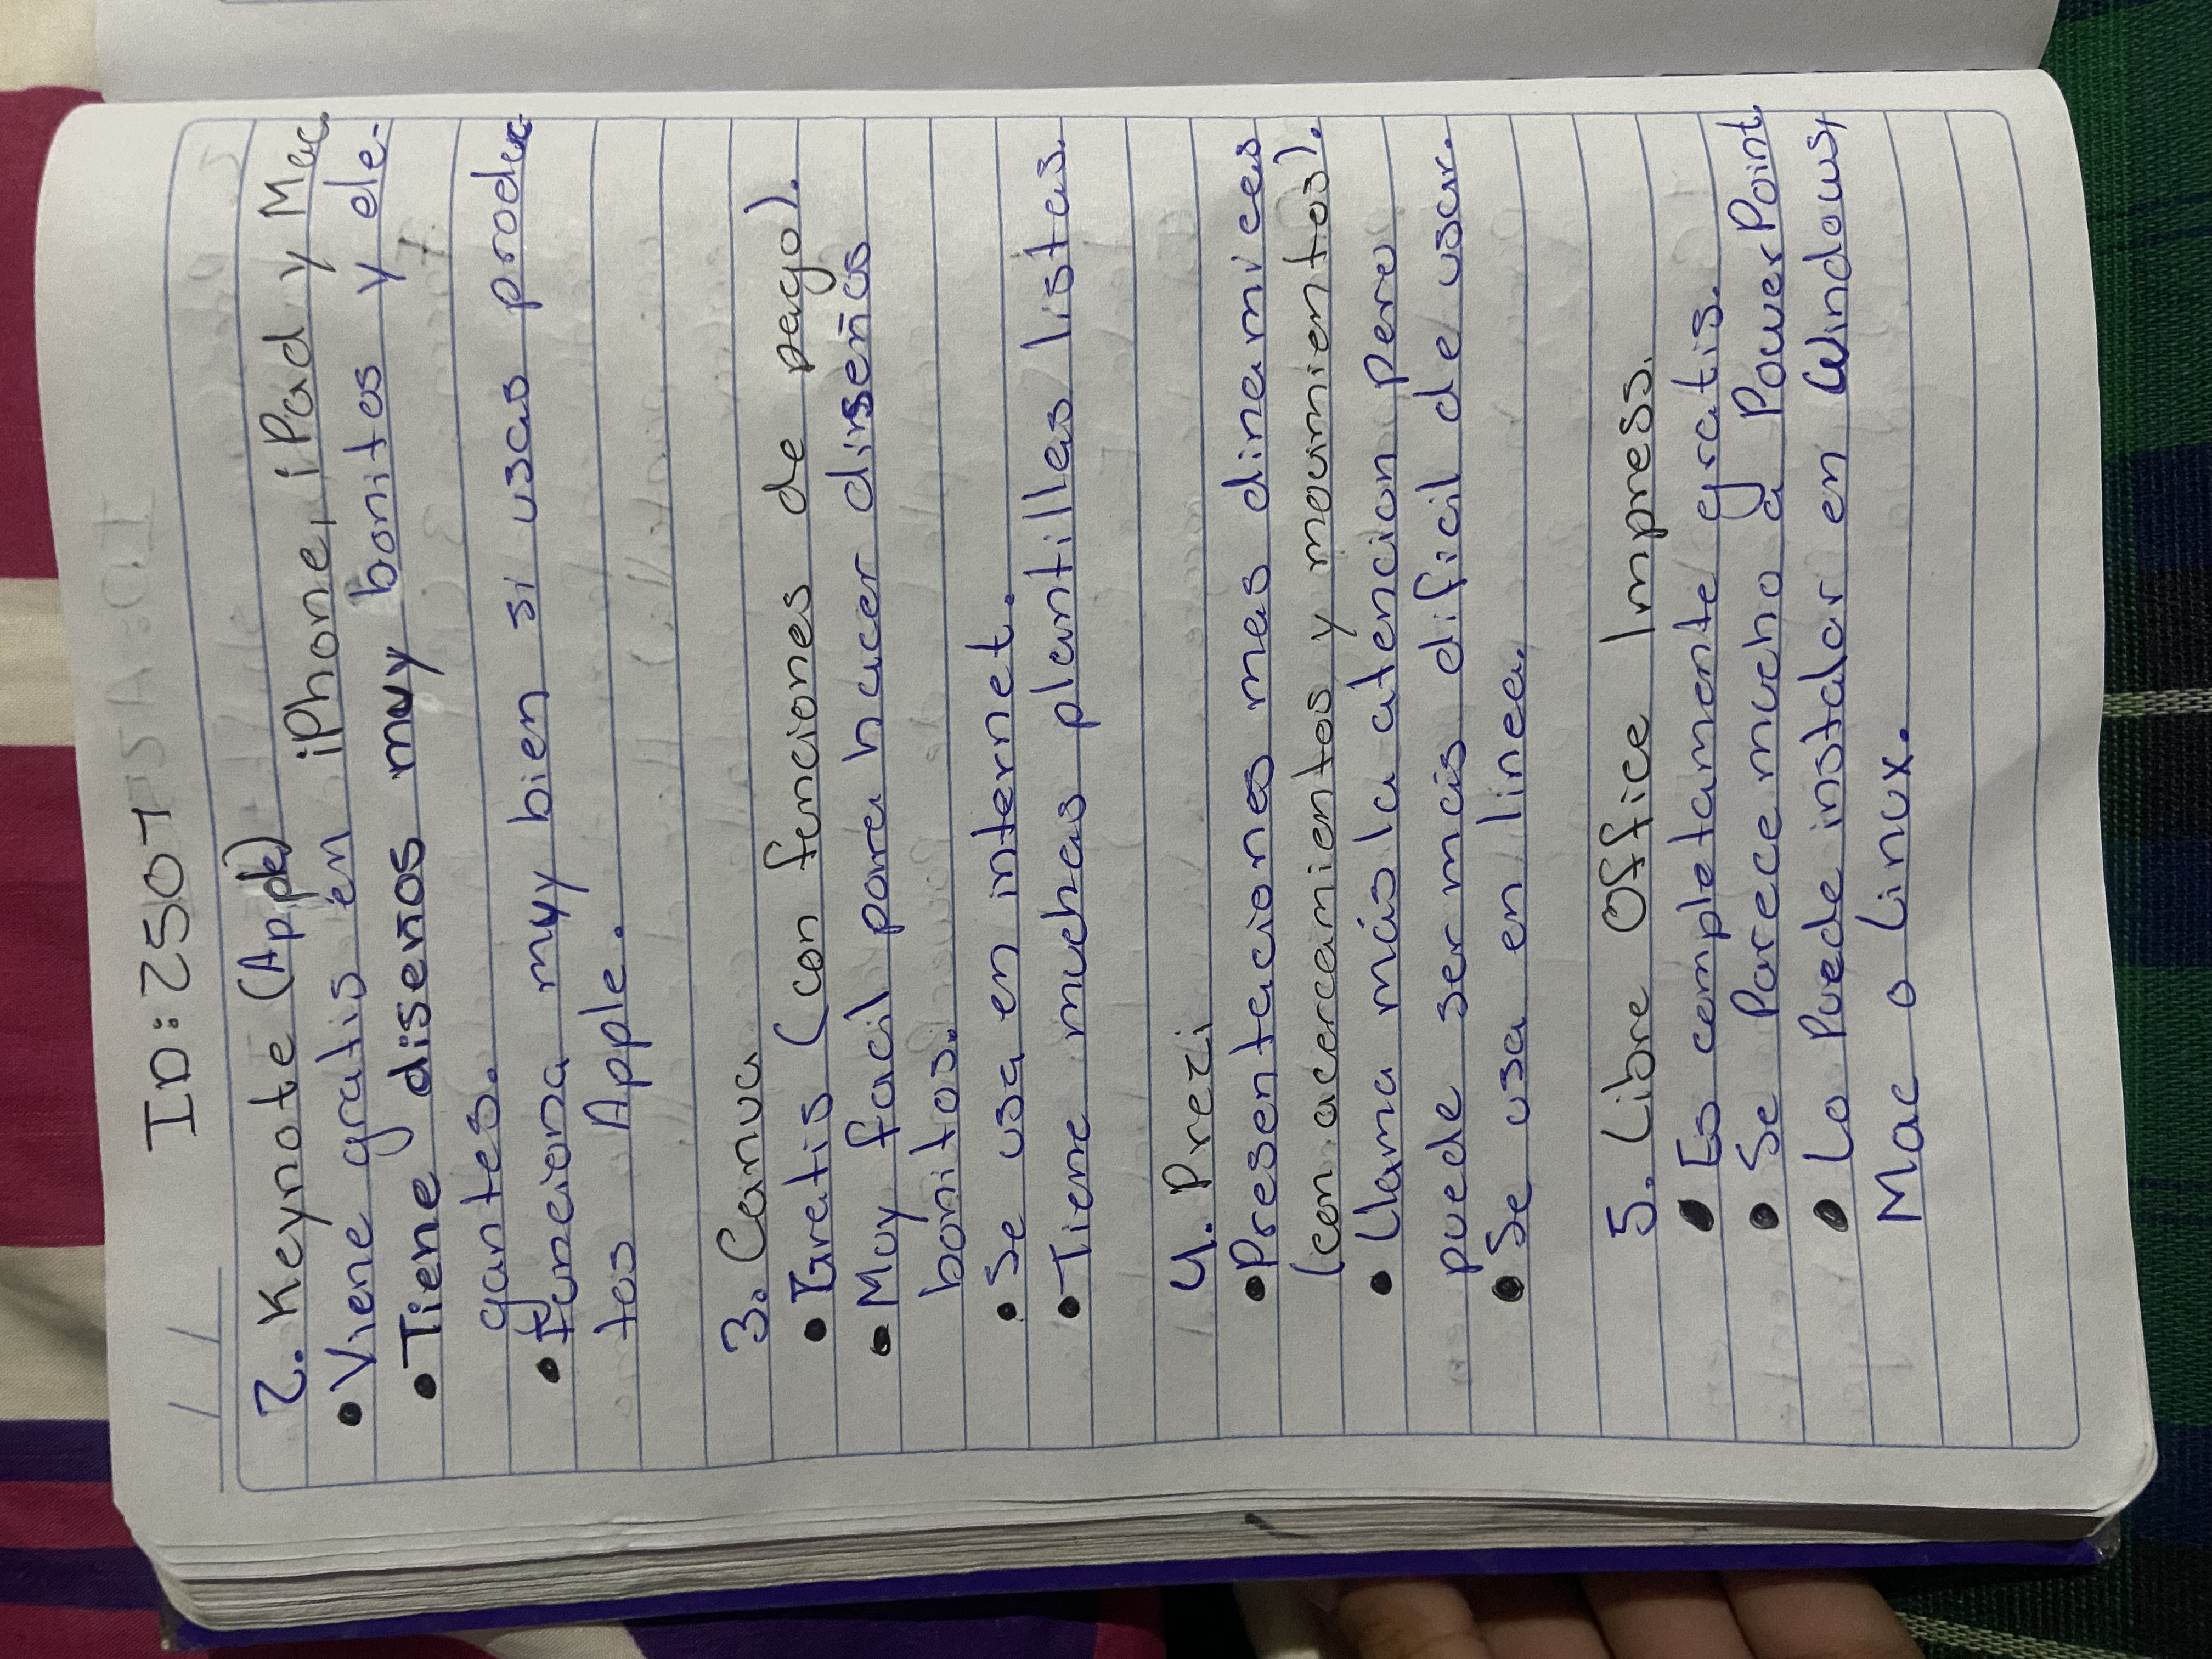 ID: 2507
2. Keynote (Apple)
• Viene gratis en iPhone, iPad y Mac.
• Tiene diseños muy bonitos y ele-
gantes.
• funciona muy bien si usas produc-
tos Apple.
3. Canva
• Gratis (con funciones de pago).
• Muy facil para hacer diseños
bonitos.
• Se usa en internet.
• Tiene muchas plantillas listas.
4. Prezi
• Presentaciones mas dinamicas
(con acercamientos y movimientos).
• Llama más la atencion pero
puede ser más dificil de usar.
• Se usa en linea.
5. Libre Office Impress.
• Es completamente gratis.
• Se Parece mucho a PowerPoint
• Lo Puede instalar en Windows,
Mac o Linux.